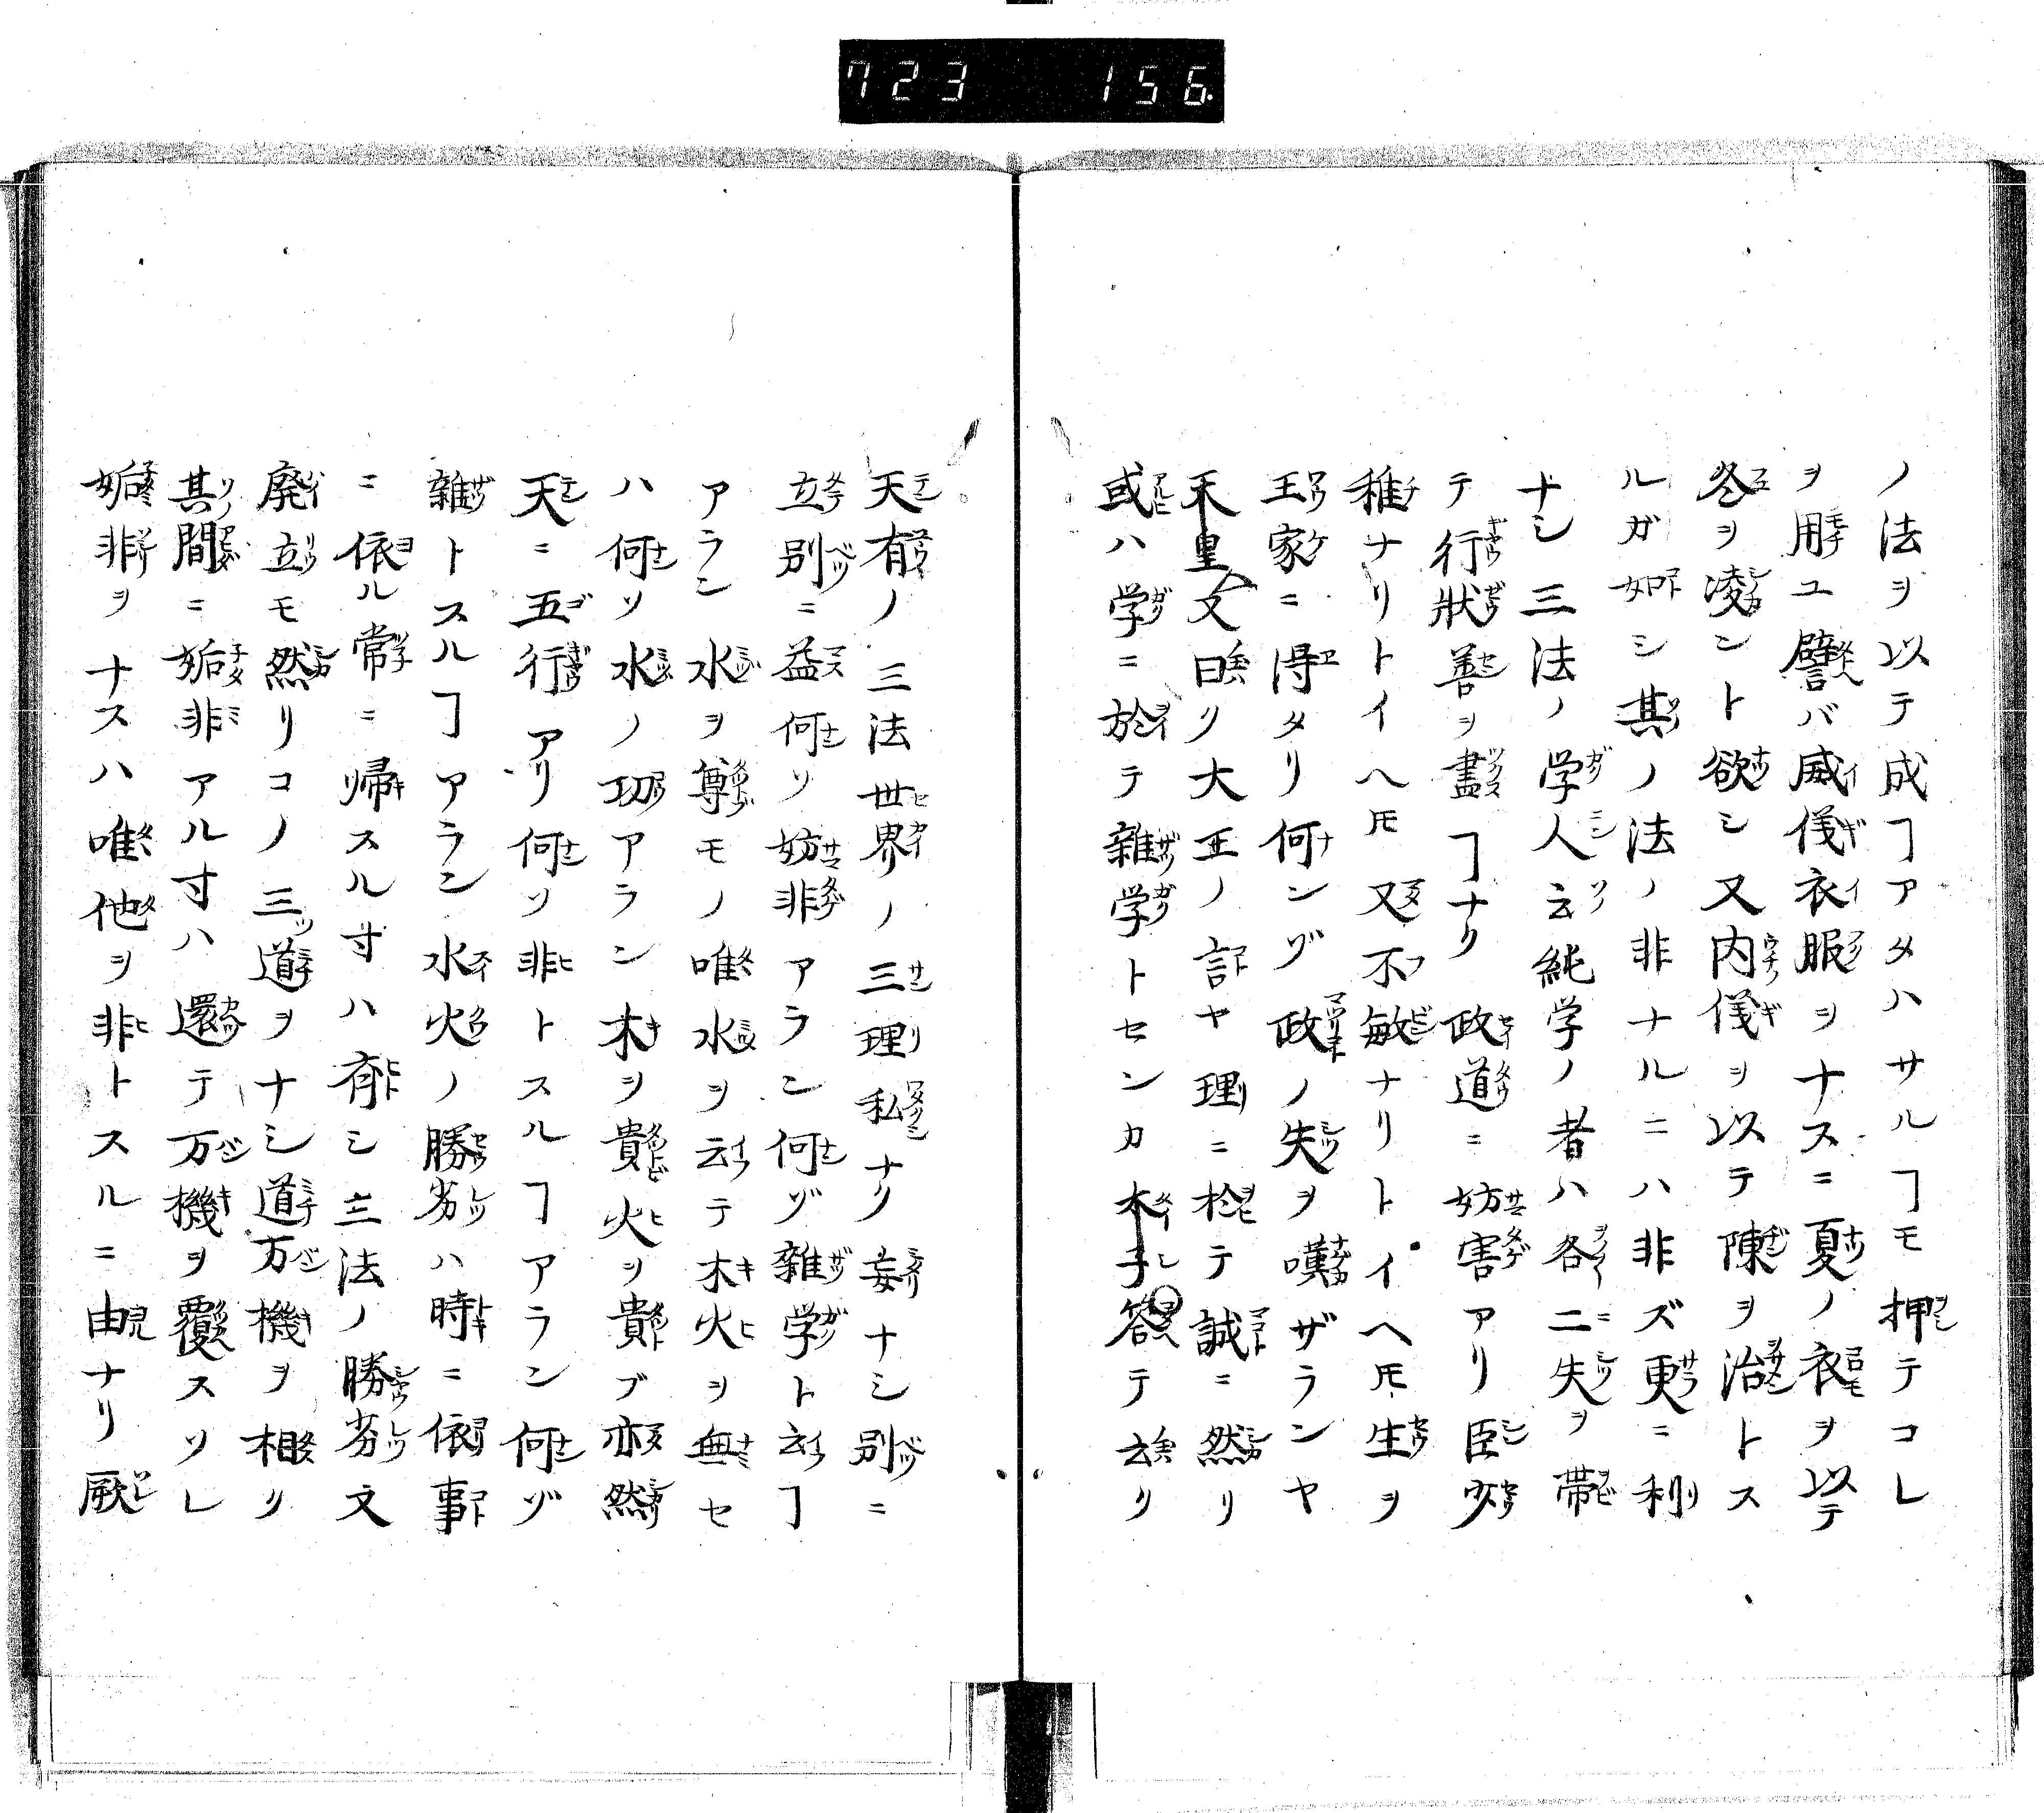 723 156.
ノ法ヲ以テ成ヿアタハサルヿモ押テコレ
ヲ用ユ譬バ威儀衣服ヲナスニ夏ノ衣ヲ以テ
冬ヲ凌ント欲シ又内儀ヲ以テ陳ヲ治トス
ルガ如シ其ノ法ノ非ナルニハ非ズ更ニ利
ナシ三法ノ学人云純学ノ者ハ各二失ヲ帯
テ行狀善ヲ盡ヿナリ政道ニ妨害アリ臣少
稚ナリトイヘ𪜈又不敏ナリトイヘ𪜈生ヲ
王家ニ得タリ何ンゾ政ノ失ヲ嘆ザランヤ
天皇又曰リ大正ノ言ヤ理ニ於テ誠ニ然リ
或ハ学ニ於テ雜学トセンカ太子答テ曰リ
天有ノ三法世界ノ三理私ナリ妄ナシ別ニ
立別ニ益何ソ妨非アラン何ゾ雜学ト云ヿ
アラン水ヲ尊モノ唯水ヲ云テ木火ヲ無セ
ハ何ソ水ノ功アラン木ヲ貴火ヲ貴ブ亦然
天ニ五行アリ何ソ非トスルヿアラン何ゾ
雜トスルヿアラン水火ノ勝劣ハ時ニ依事
ニ依ル常ニ帰スル寸ハ斉シ三法ノ勝劣文
廃立モ然リコノ三道ヲナシ道万機ヲ相リ
其間ニ妬非アル寸ハ還テ万機ヲ覆スソレ
妬非ヲナスハ唯他ヲ非トスルニ由ナリ厥